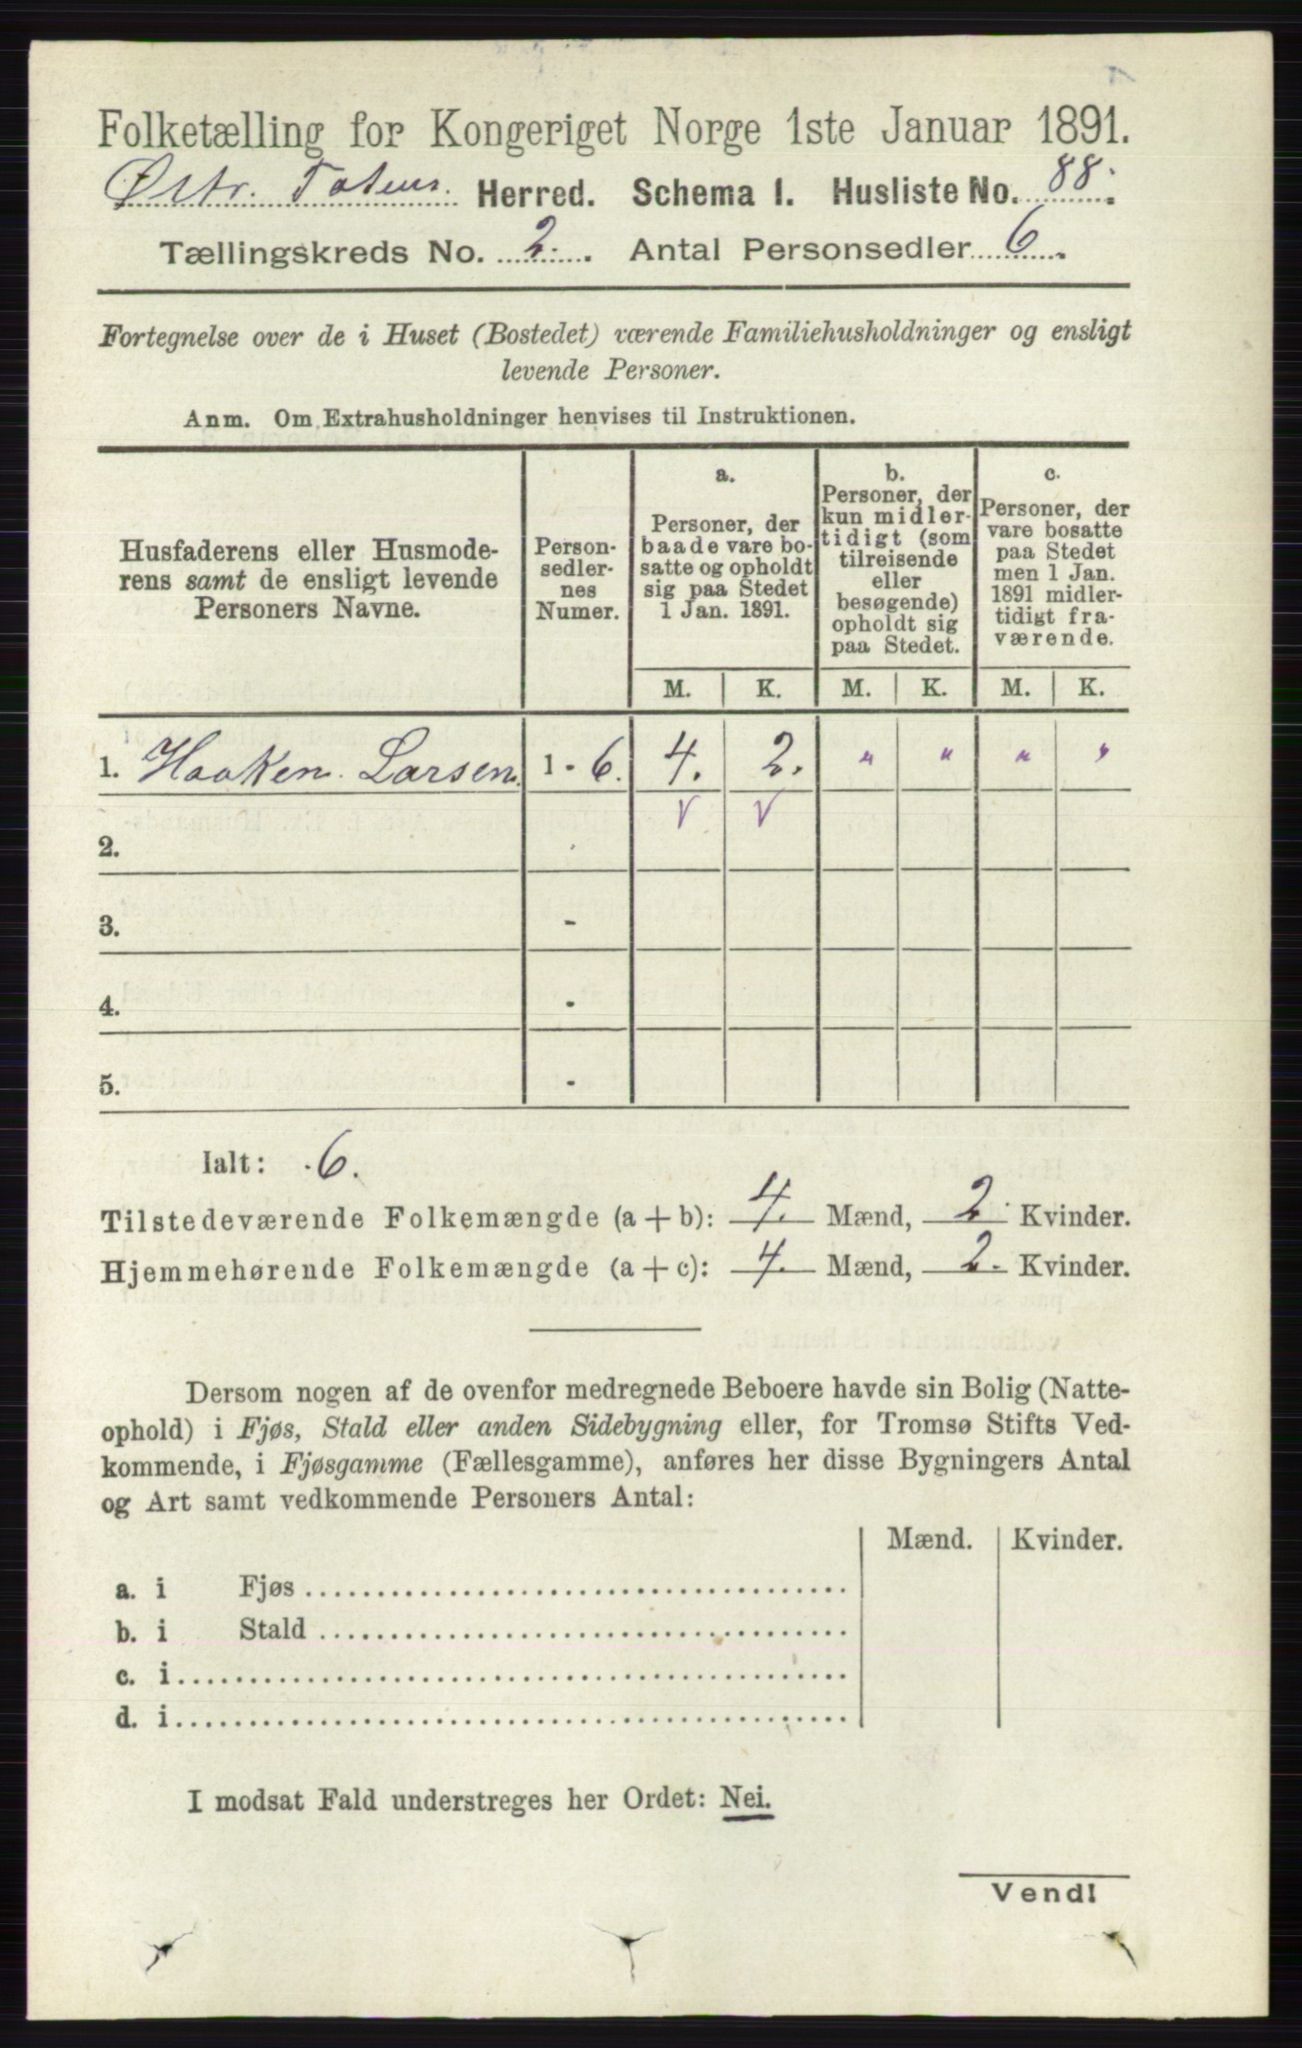 Folketælling for Kongeriget Norge 1ste Januar 1891.
Østr. Totens. Herred. Schema I. Husliste No. 88.
Tællingskreds No. 2. Antal Personsedler 6.
Fortegnelse over de i Huset (Bostedet) værende Familiehusholdninger og ensligt
levende Personer.
Anm. Om Extrahusholdninger henvises til Instruktionen.
Husfaderens eller Husmode-
rens samt de ensligt levende
Personers Navne.
Person-
sedler-
nes
Numer.
a.
Personer, der
baade vare bo-
satte og opholdt
sig paa Stedet
1 Jan. 1891.
b.
Personer, der
kun midler-
tidigt (som
tilreisende
eller
besøgende)
opholdt sig
paa Stedet.
c.
Personer, der
vare bosatte
paa Stedet
men 1 Jan.
1891 midler-
tidigt fra-
værende.
M. K. M. K. M. K.
1. Haaken Larsen. 1 - 6. 4. 2. " " " "
2.
3. -
4. -
5. -
Ialt: 6.
Tilstedeværende Folkemængde (a + b): 4. Mænd, 2. Kvinder.
Hjemmehørende Folkemængde (a + c): 4. Mænd, 2. Kvinder.
Dersom nogen af de ovenfor medregnede Beboere havde sin Bolig (Natte-
ophold) i Fjøs, Stald eller anden Sidebygning eller, for Tromsø Stifts Ved-
kommende, i Fjøsgamme (Fællesgamme), anføres her disse Bygningers Antal
og Art samt vedkommende Personers Antal:
Mænd. Kvinder.
a. i Fjøs
b. i Stald
c. i
d. i
I modsat Fald understreges her Ordet: Nei.
Vend!